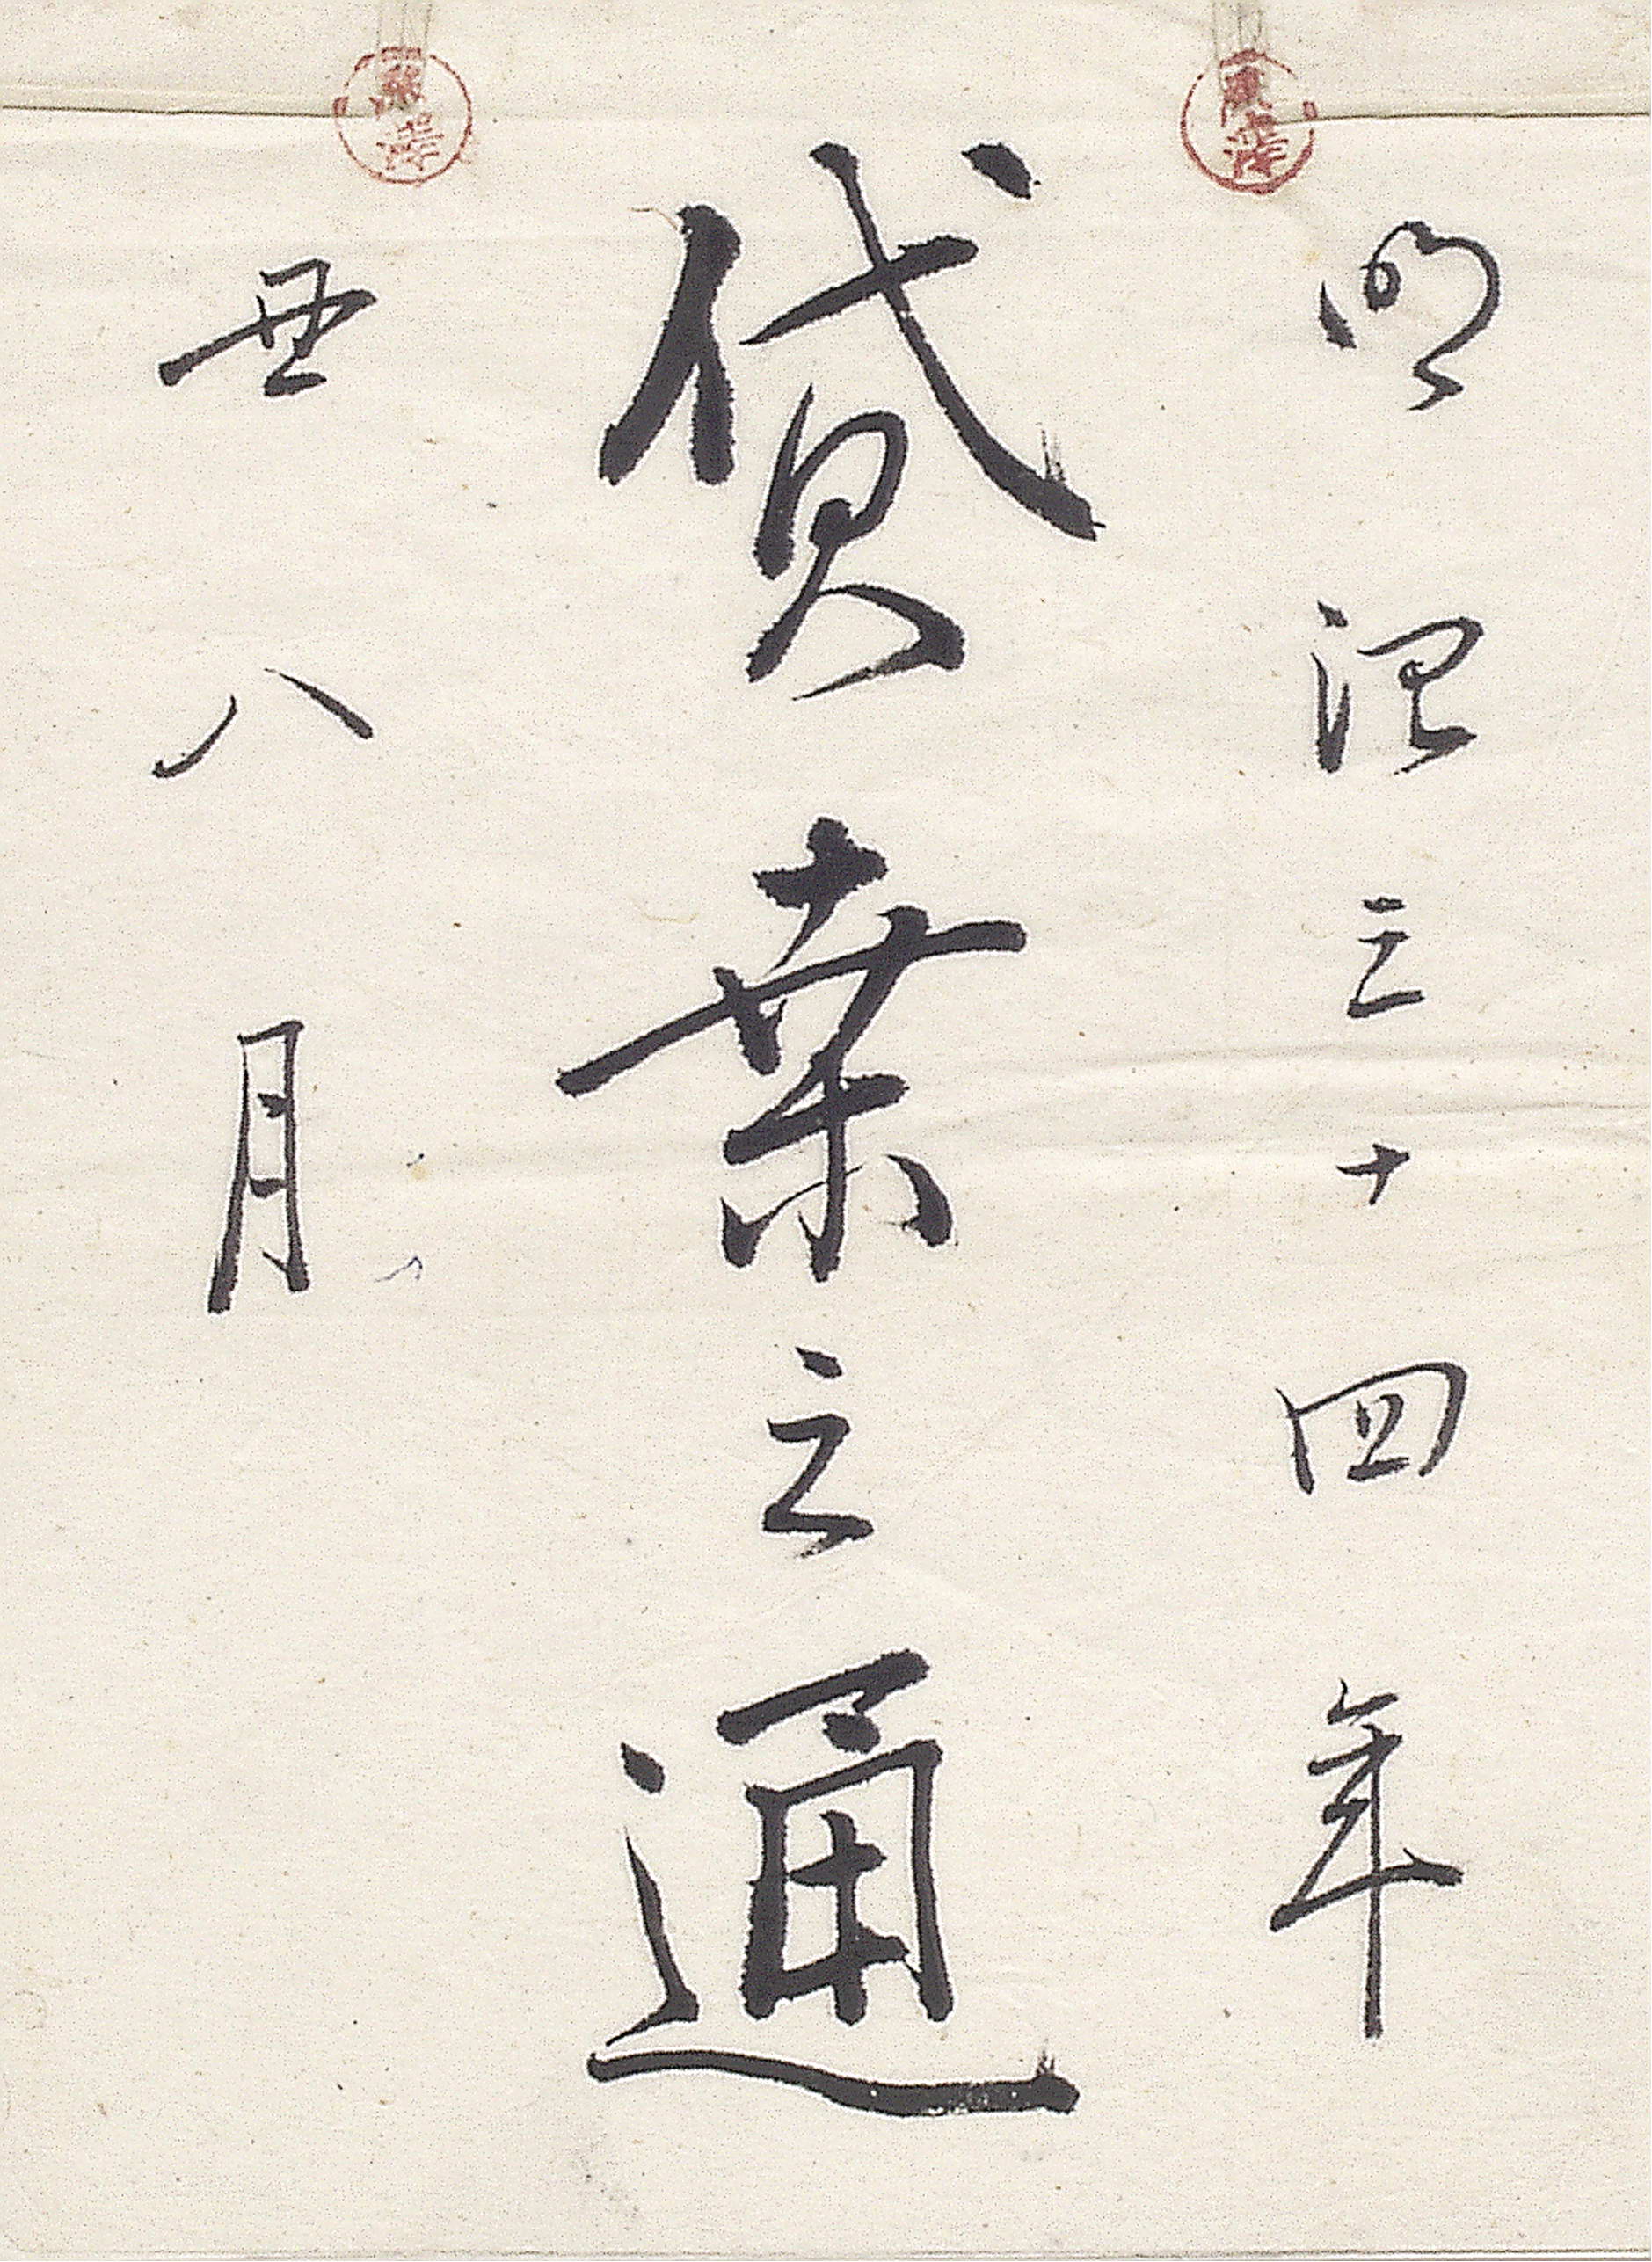 明治三十四年
貸桒之通
丑八月